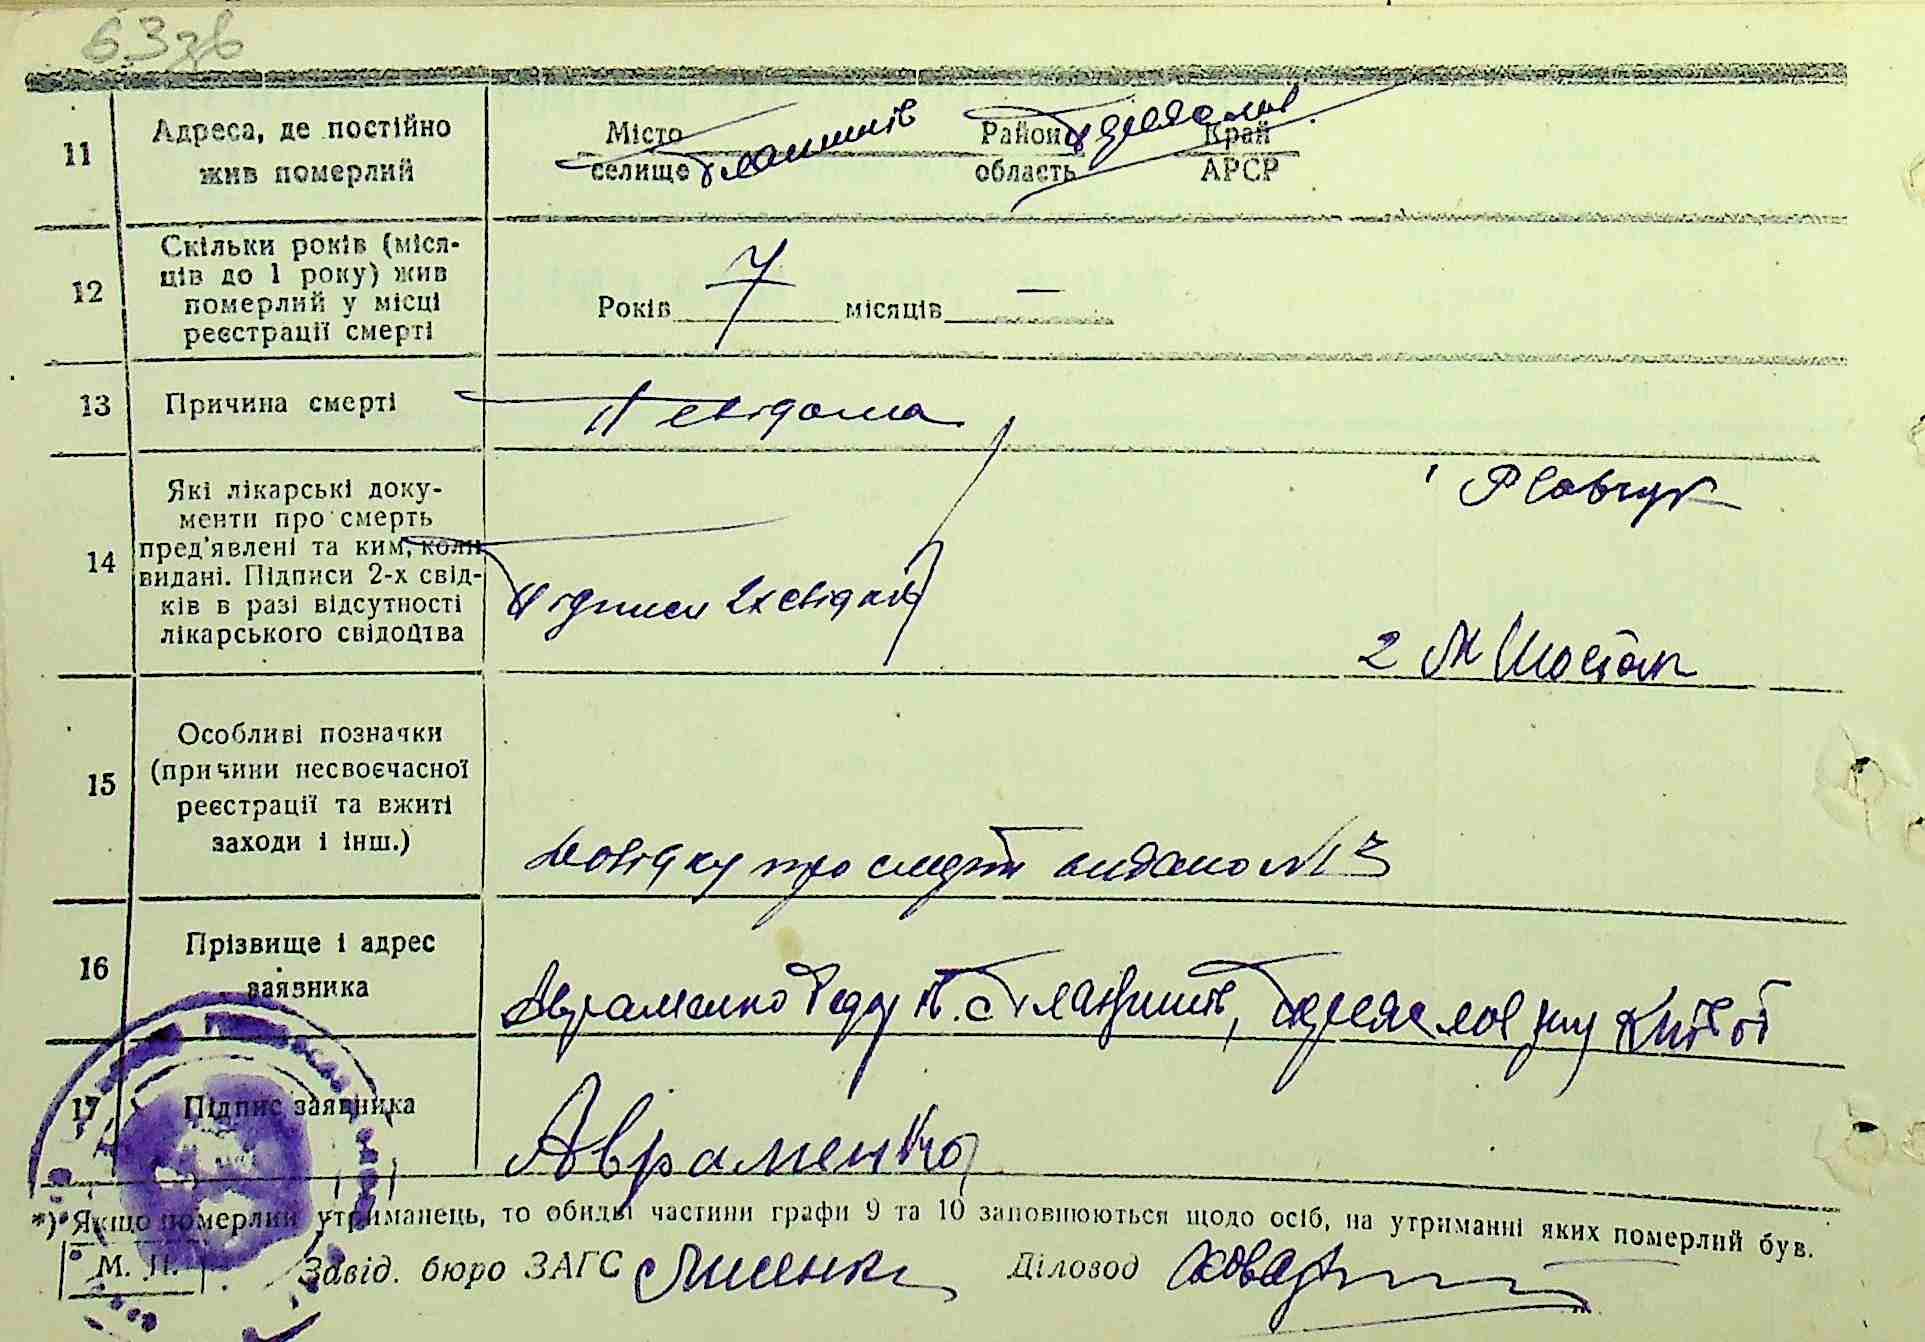 63зв
11
Адреса, де постійно
жив померлий
Місто
селище
Гланишів
Район
область
Переяслів
Край
АРСР
12
Скільки років (міся-
ців до 1 року) жив
померлий у місці
реєстрації смерті
Років 7 місяців —
13
Причина смерті
Невідома
14
Які лікарські доку-
менти про смерть
пред'явлені та ким, коли
видані. Підписи 2-х свід-
ків в разі відсутності
лікарського свідоцтва
Підписи 2х свідків
1
2 М Шостак
15
Особливі позначки
(причини несвоєчасної
реєстрації та вжиті
заходи і інш.)
Довідку про смерть видано №13
16
Прізвище і адрес
заявника
Авраменко Федір с Гланишів, Переяслов Київ
17
Підпис заявника
Авраменко
*) Якщо померлий утриманець, то обидві частини графи 9 та 10 заповнюються щодо осіб, на утриманні яких померлий був.
М. П.
Завід. бюро ЗАГС Лисенко Діловод